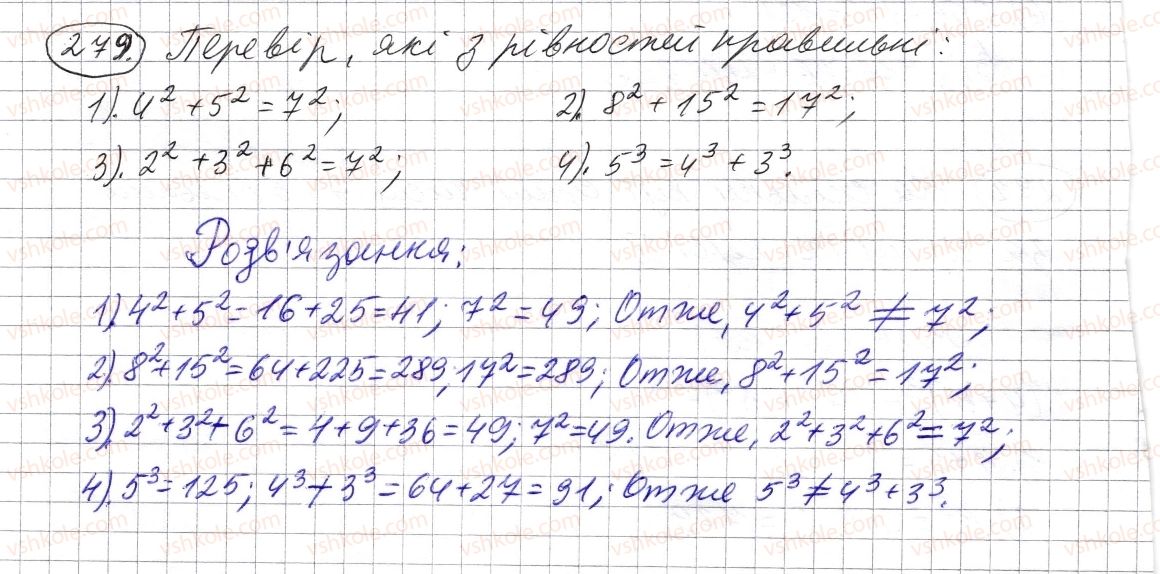 279. Перевір, які з рівностей правильні:
1). 4² + 5² = 7²; 2). 8² + 15² = 17²;
3). 2² + 3² + 6² = 7²; 4). 5³ = 4³ + 3³.
Розв'язання:
1). 4² + 5² = 16 + 25 = 41; 7² = 49; Отже, 4² + 5² ≠ 7²;
2). 8² + 15² = 64 + 225 = 289, 17² = 289; Отже, 8² + 15² = 17²;
3). 2² + 3² + 6² = 4 + 9 + 36 = 49; 7² = 49. Отже, 2² + 3² + 6² = 7²;
4). 5³ = 125; 4³ + 3³ = 64 + 27 = 91; Отже 5³ ≠ 4³ + 3³.